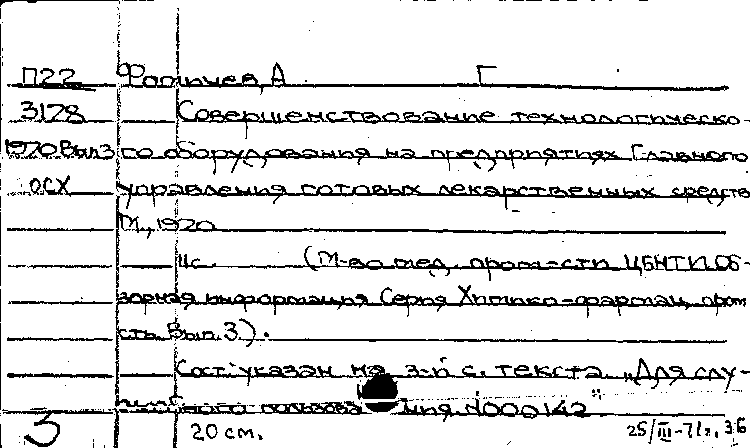 П22 Фатичев, А. Г
3178 Совершенствование технологическо-
1970 Вып3 го оборудования на предприятиях Главного
ОСХ управления готовых лекарственных средств
М., 1970
11с. (М-во мед. пром-сти ЦБНТИ. Об-
зорная информация Серия Химико-фармац. пром
сть. Вып. 3).
Сост. указан на 3-й с. текста. „Для слу-
жебного пользования №000142"
3 20 см. 25/III-71г. 3Б